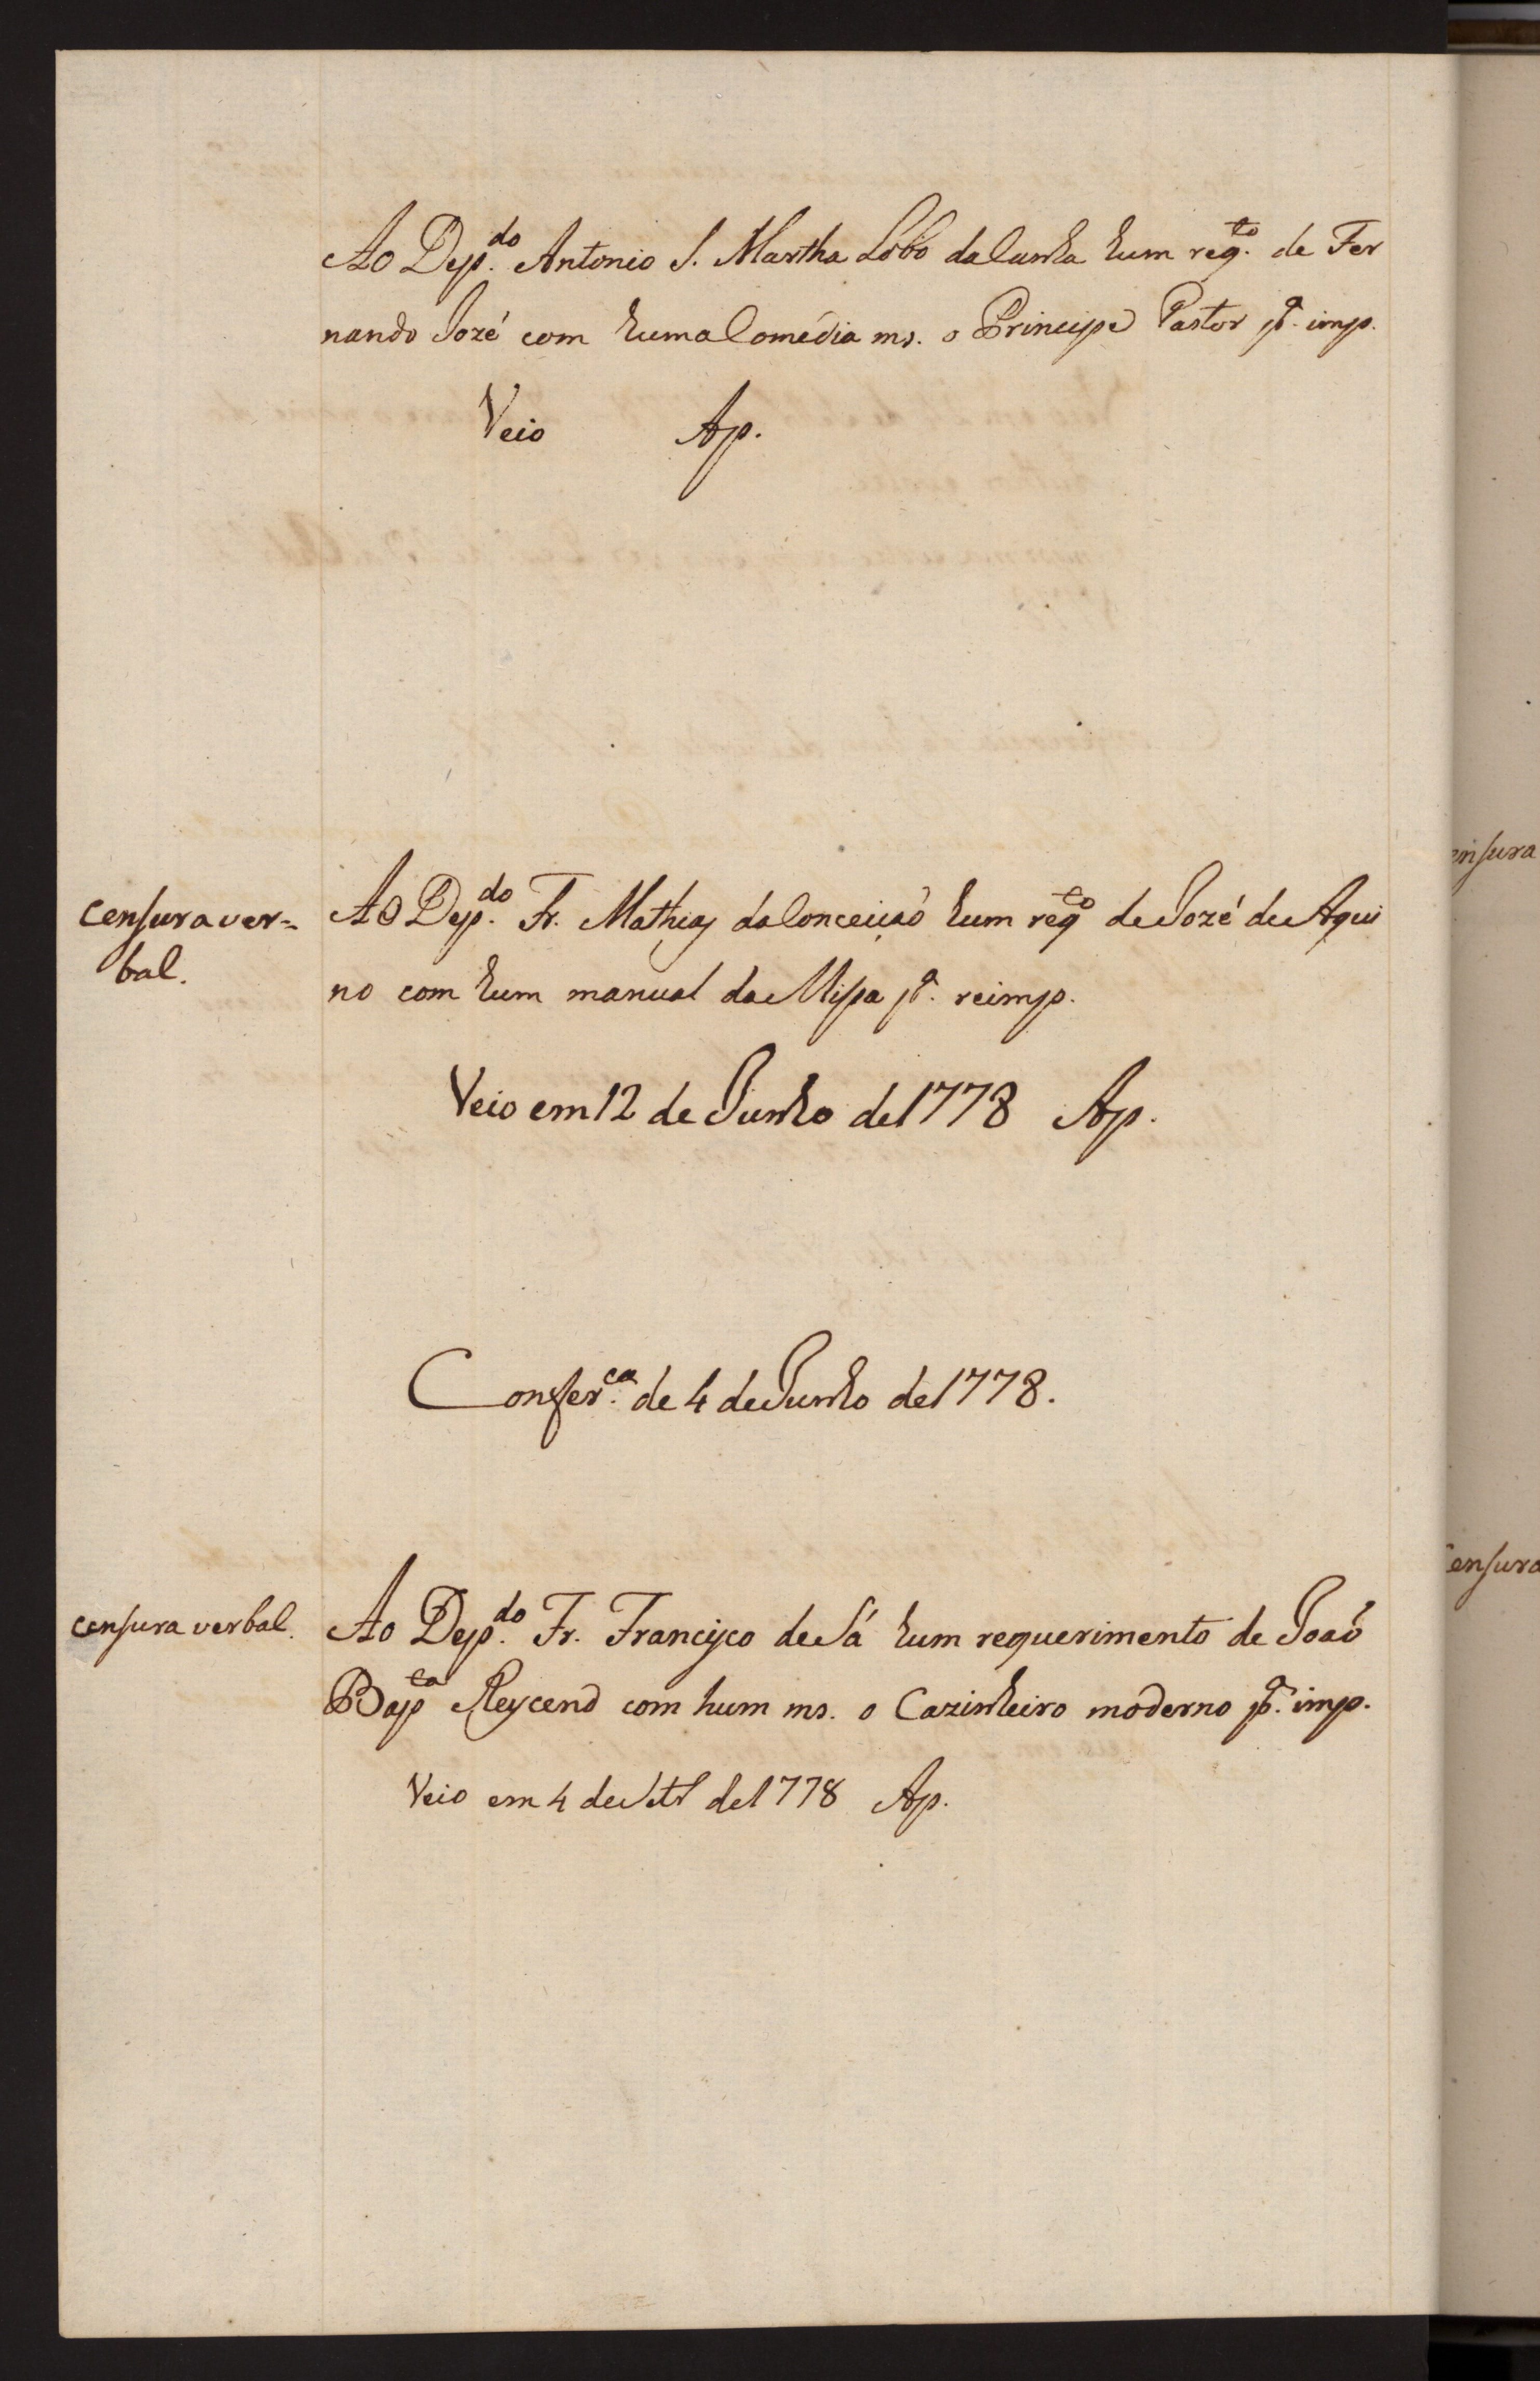 Ao Dep.do Antonio S. Martha Lobo da Cunha hum req.to de Fer
nando Jozé com huma Comédia ms. o Principe Pastor p.a imp.
Veio Ap.
censura ver=
bal.
Ao Dep.do Fr. Mathias da Conceiçaõ hum reqto de Jozé de Aqui
no com hum manual da Missa p.a reimp.
Veio em 12 de Junho de 1778 Ap.
Confer.ca de 4 de Junho de 1778.
censura verbal.
Ao Dep.do Fr. Francisco de Sá hum requerimento de Joaõ
Bapta Reycend com hum ms. o Cozinheiro moderno p.a imp.
Veio em 4 de de 1778 Ap.
ensura
ensura